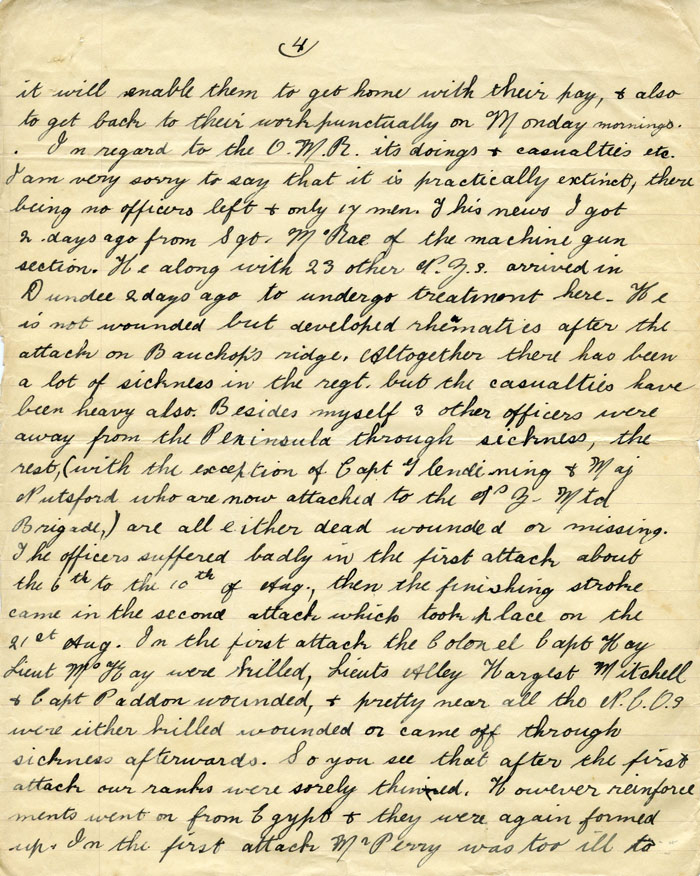 4
it will enable them to get home with their pay, & also
to get back to their work punctually on Monday mornings.
. In regard to the O.M.R. its doings & casualties etc.
I am very sorry to say that it is practically extinct, there
being no officers left & only 17 men. This news I got
2 days ago from Sgt. McRae of the machine gun
section. He along with 23 other N.Z.s. arrived in
Dundee 2 days ago to undergo treatment here. He
is not wounded but developed rheumatics after the
attack on Bauchop's ridge. Altogether there has been
a lot of sickness in the regt. but the casualties have
been heavy also. Besides myself 3 other officers were
away from the Peninsula through sickness, the
rest, (with the exception of Capt Glendining & Maj
Nutsford who are now attached to the N.Z. Mtd
Brigade,) are all either dead wounded or missing.
The officers suffered badly in the first attack about
the 6th to the 10th of Aug., then the finishing stroke
came in the second attack which took place on the
21st Aug. In the first attack the Colonel Capt Hay
Lieut McKay were killed, Lieuts Alley Hargest Mitchell
& Capt Paddon wounded, & pretty near all the N.C.Os
were either killed wounded or came off through
sickness afterwards. So you see that after the first
attack our ranks were sorely thinned. However reinforce
ments went on from Egypt & they were again formed
up. In the first attack Mr Perry was too ill to